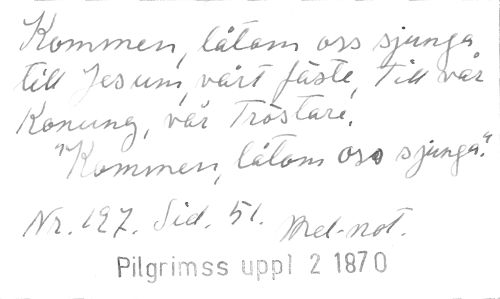 Kommen, låtom oss sjunga
till Jesum, vårt fäste, Till vår
Konung, vår Tröstare.
"Kommen, låtom oss sjunga."
Nr. 197. Sid. 51. Mel-not.
Pilgrimss uppl 2 1870